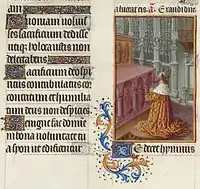 Quoniam si voluis
ses sacrificium dedisse
utiq; holocaustis non
delectaberis
Sacrificium deo spi
ritus contribulatus cor
contritum et humilia
tum deus non despicies
Benigne fac domine
in bona voluntate tu
a syon ut edificentur
Te decet hymnus